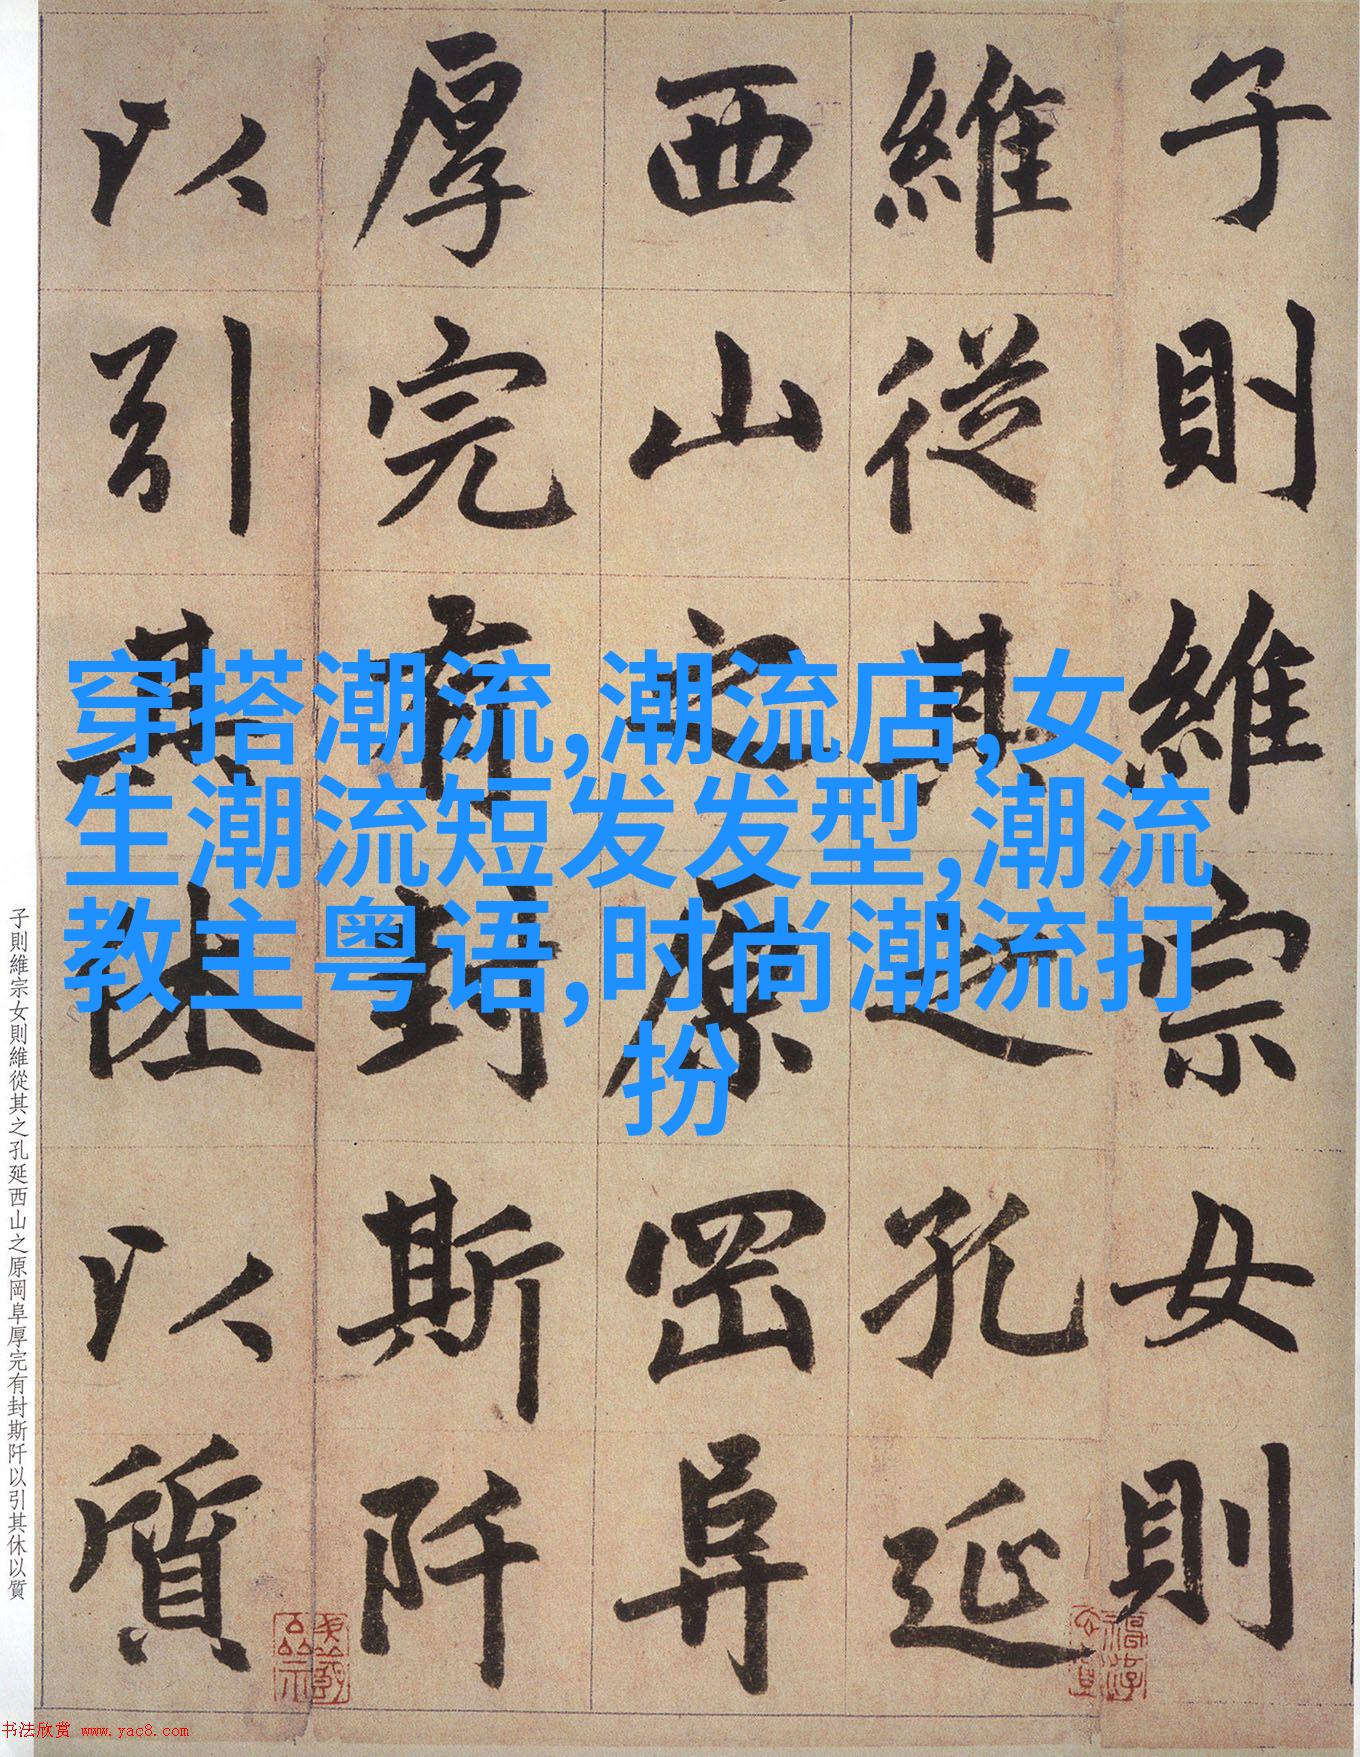 子則維宗女則
維從其之孔延
西山之原岡阜
厚完有封斯阡
以引其休以質
穿搭潮流,潮流店,女
生潮流短发发型,潮流
教主粤语,时尚潮流打
扮
子則維宗女則維從其之孔延西山之原岡阜厚完有封斯阡以引其休以質
书法欣赏 www.yac8.com